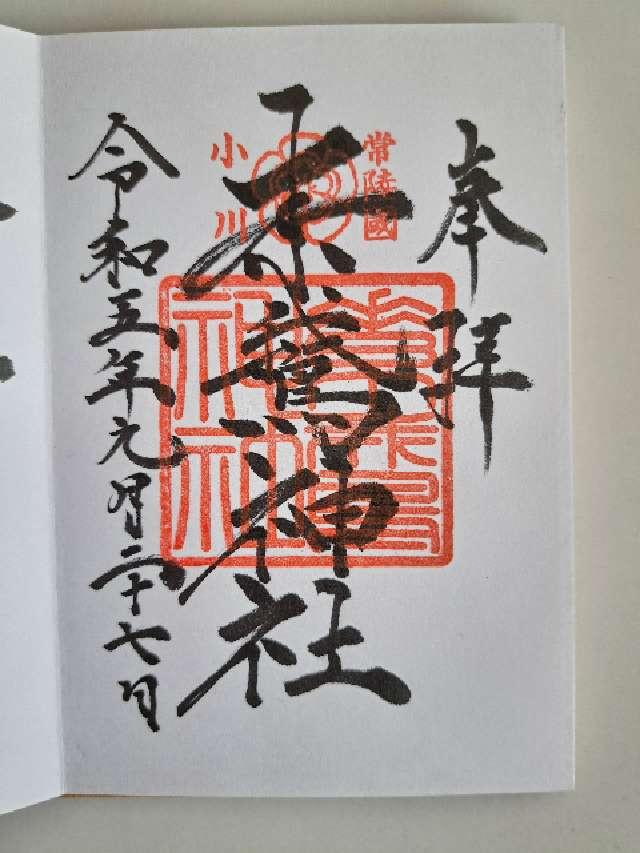 奉拝
常陸國
小川
素鵞神社
素鵞神社
令和五年元月二十七日